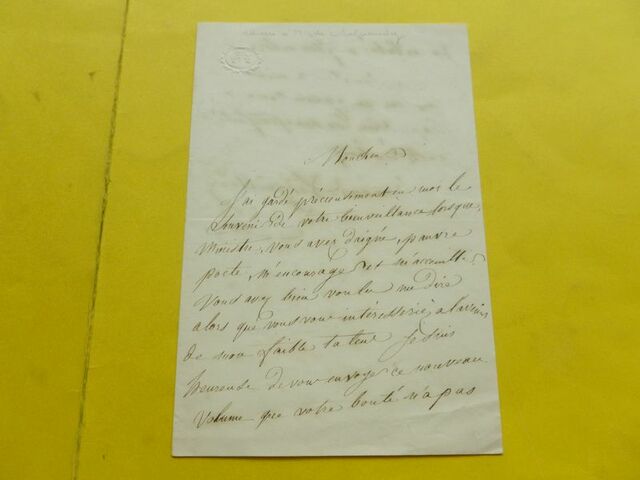 Monsieur
J'ai gardé précieusement en moi le
souvenir de votre bienveillance lorsque,
Ministre, vous avez daigné, pauvre
poete, m'encourager et m'accueillir.
Vous avez bien voulu me dire
alors que vous vous intéressiez à l'avenir
de mon faible talent. Je suis
heureuse de vous envoyer ce nouveau
volume que votre bonté n'a pas